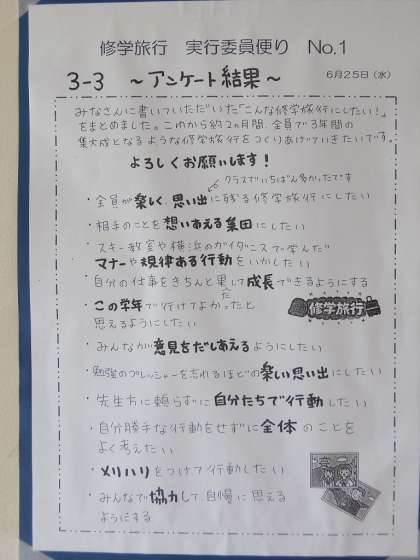 修学旅行 実行委員便り No.1
3-3 ～アンケート結果～
6月25日(水)
みなさんに書いていただいた「こんな修学旅行にしたい！」
をまとめました。これから約2ヵ月間、全員で3年間の
集大成となるような修学旅行をつくりあげていきたいです。
よろしくお願いします！
クラスでいちばん多かったです
・全員が楽しく、思い出に残る修学旅行にしたい
・相手のことを想いあえる集団にしたい
・スキー教室や横浜のガイダンスで学んだ
マナーや規律ある行動をいかしたい
・自分の仕事をきちんと果して成長できるようにする
た
・この学年で行けてよかったと
思えるようにしたい
修学旅行
・みんなが意見をだしあえるようにしたい
・勉強のプレッシャーを忘れるほどの楽しい思い出にしたい
・先生方に頼らずに自分たちで行動したい
・自分勝手な行動をせずに全体のことを
よく考えたい
・メリハリをつけて行動したい
・みんなで協力して自慢に思える
ようにする